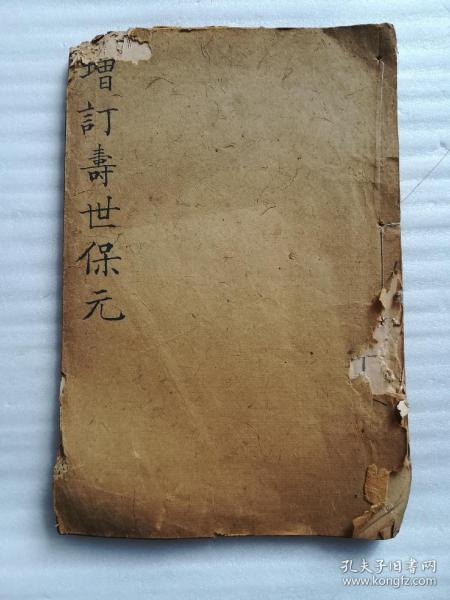 增訂壽世保元
孔夫子旧书网
www.kongfz.com